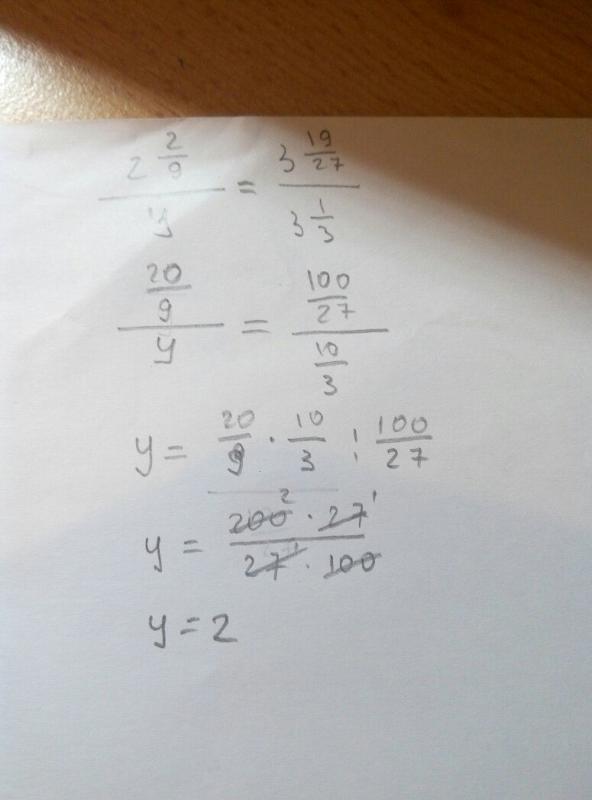 2 2/9 / y = 3 19/27 / 3 1/3
20/9 / y = 100/27 / 10/3
y = 20/9 · 10/3 : 100/27
y = 200 2 · 27 1 / 27 1 · 100
y = 2